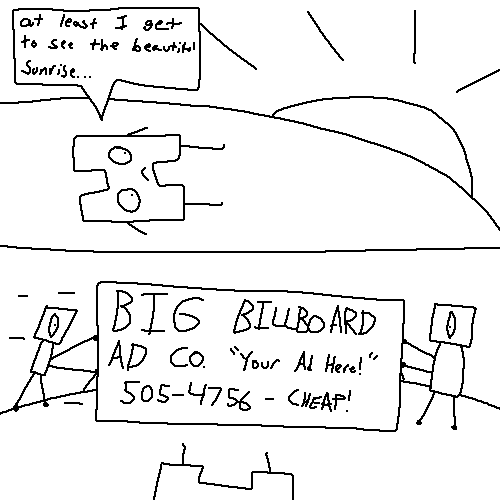 at least I get
to see the beautiful
Sunrise...
BIG BILLBOARD
AD CO. "Your Ad Here!"
505-4756 - CHEAP!